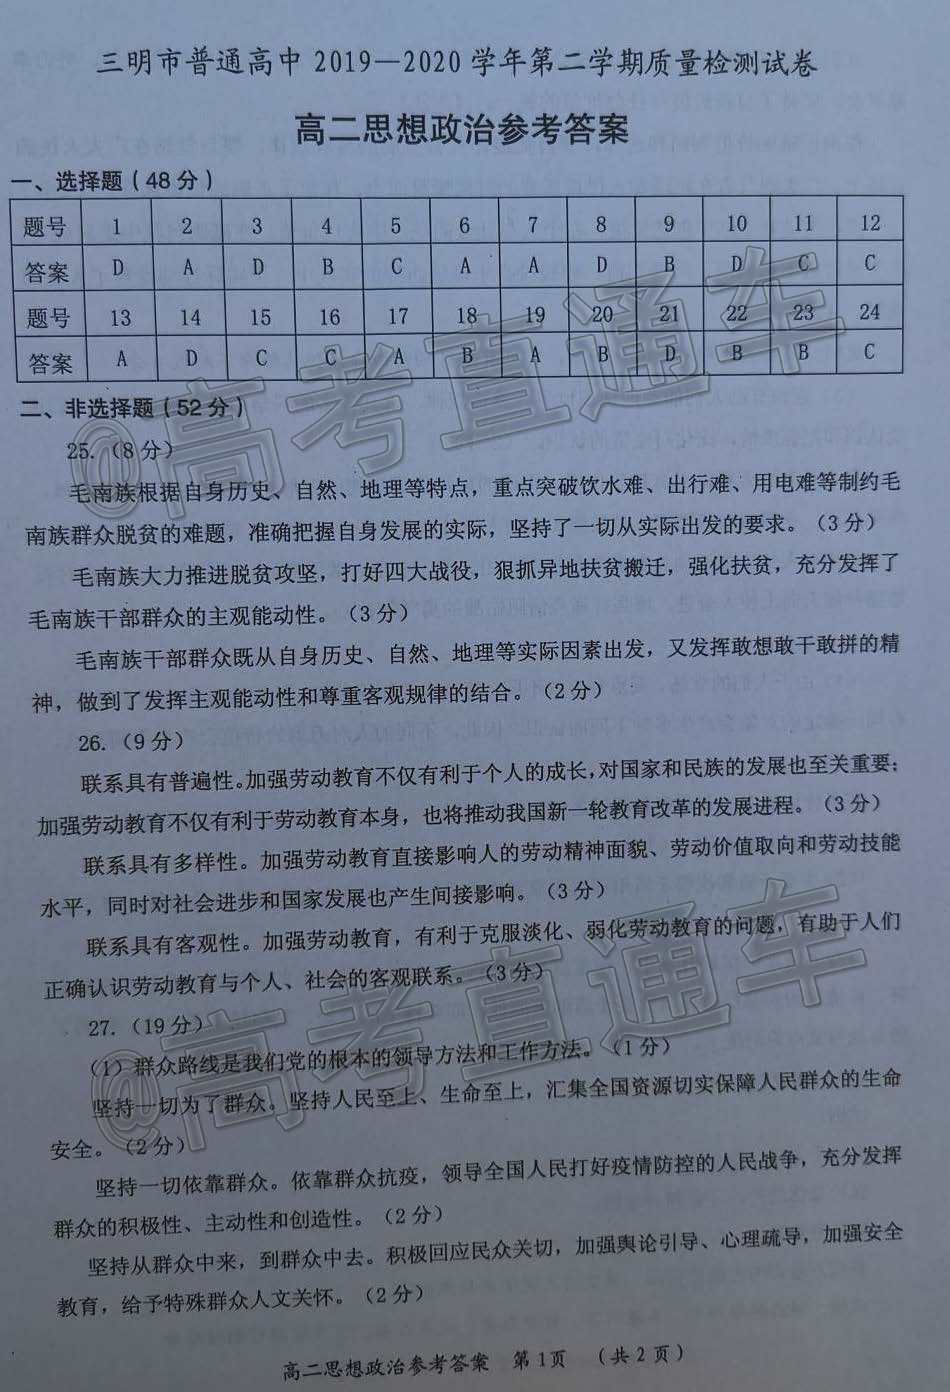 三明市普通高中 2019—2020 学年第二学期质量检测试卷
高二思想政治参考答案
一、选择题（48 分）
题号 1 2 3 4 5 6 7 8 9 10 11 12
答案 D A D B C A A D B D C C
题号 13 14 15 16 17 18 19 20 21 22 23 24
答案 A D C C A B A B D B B C
二、非选择题（52 分）
25.（8 分）
毛南族根据自身历史、自然、地理等特点，重点突破饮水难、出行难、用电难等制约毛
南族群众脱贫的难题，准确把握自身发展的实际，坚持了一切从实际出发的要求。（3 分）
毛南族大力推进脱贫攻坚，打好四大战役，狠抓异地扶贫搬迁，强化扶贫，充分发挥了
毛南族干部群众的主观能动性。（3 分）
毛南族干部群众既从自身历史、自然、地理等实际因素出发，又发挥敢想敢干敢拼的精
神，做到了发挥主观能动性和尊重客观规律的结合。（2 分）
26.（9 分）
联系具有普遍性。加强劳动教育不仅有利于个人的成长，对国家和民族的发展也至关重要；
加强劳动教育不仅有利于劳动教育本身，也将推动我国新一轮教育改革的发展进程。（3 分）
联系具有多样性。加强劳动教育直接影响人的劳动精神面貌、劳动价值取向和劳动技能
水平，同时对社会进步和国家发展也产生间接影响。（3 分）
联系具有客观性。加强劳动教育，有利于克服淡化、弱化劳动教育的问题，有助于人们
正确认识劳动教育与个人、社会的客观联系。（3 分）
27.（19 分）
（1）群众路线是我们党的根本的领导方法和工作方法。（1 分）
坚持一切为了群众。坚持人民至上、生命至上，汇集全国资源切实保障人民群众的生命
安全。（2 分）
坚持一切依靠群众。依靠群众抗疫，领导全国人民打好疫情防控的人民战争，充分发挥
群众的积极性、主动性和创造性。（2 分）
坚持从群众中来，到群众中去。积极回应民众关切，加强舆论引导、心理疏导，加强安全
教育，给予特殊群众人文关怀。（2 分）
高二思想政治参考答案 第 1页 （共 2 页）
@高考直通车
@高考直通车